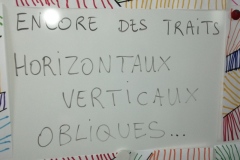 ENCORE DES TRAITS
HORIZONTAUX
VERTICAUX
OBLIQUES...